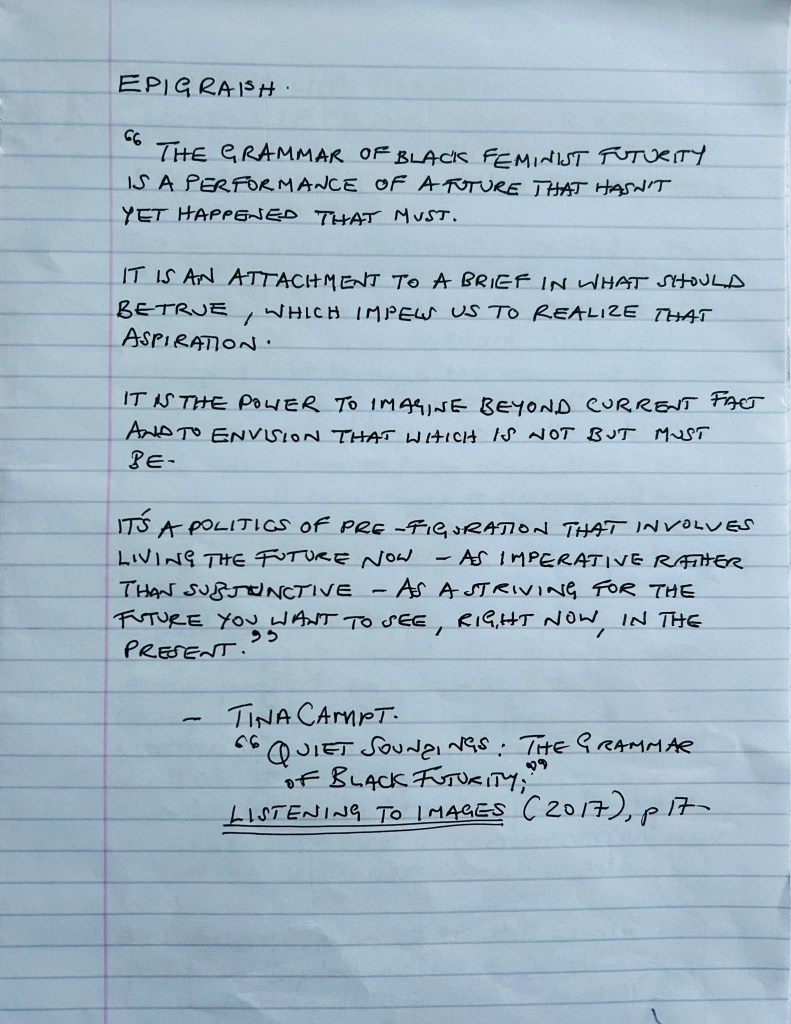 EPIGRAPH.
“ THE GRAMMAR OF BLACK FEMINIST FUTURITY
IS A PERFORMANCE OF A FUTURE THAT HASN'T
YET HAPPENED THAT MUST.
IT IS AN ATTACHMENT TO A BRIEF IN WHAT SHOULD
BE TRUE, WHICH IMPELS US TO REALIZE THAT
ASPIRATION.
IT IS THE POWER TO IMAGINE BEYOND CURRENT FACT
AND TO ENVISION THAT WHICH IS NOT BUT MUST
BE-
IT'S A POLITICS OF PRE-FIGURATION THAT INVOLVES
LIVING THE FUTURE NOW - AS IMPERATIVE RATHER
THAN SUBJUNCTIVE - AS A STRIVING FOR THE
FUTURE YOU WANT TO SEE, RIGHT NOW, IN THE
PRESENT.”
- TINA CAMPT.
“QUIET SOUNDINGS: THE GRAMMAR
OF BLACK FUTURITY;”
LISTENING TO IMAGES (2017), p 17-